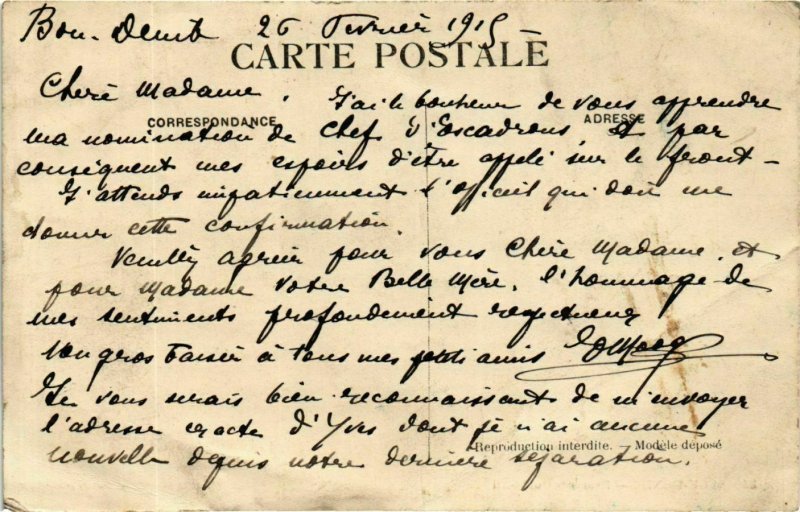 Bou-Denib 26 Février 1915
CARTE POSTALE
Chère Madame. J'ai le bonheur de vous apprendre
CORRESPONDANCE
ADRESSE
ma nomination de Chef d'Escadrons et par
conséquent mes espoirs d'être appelé sur le front –
J'attends impatiemment l'officiel qui doit me
donner cette confirmation.
Veuillez agréer pour vous Chère Madame, et
pour Madame votre Belle Mère, l'hommage de
mes sentiments profondément respectueux
Un gros baiser à tous mes petits amis
Je vous serais bien reconnaissant de m'envoyer
l'adresse exacte d'Yves dont je n'ai aucune
Reproduction interdite. – Modèle déposé
nouvelle depuis notre dernière séparation.